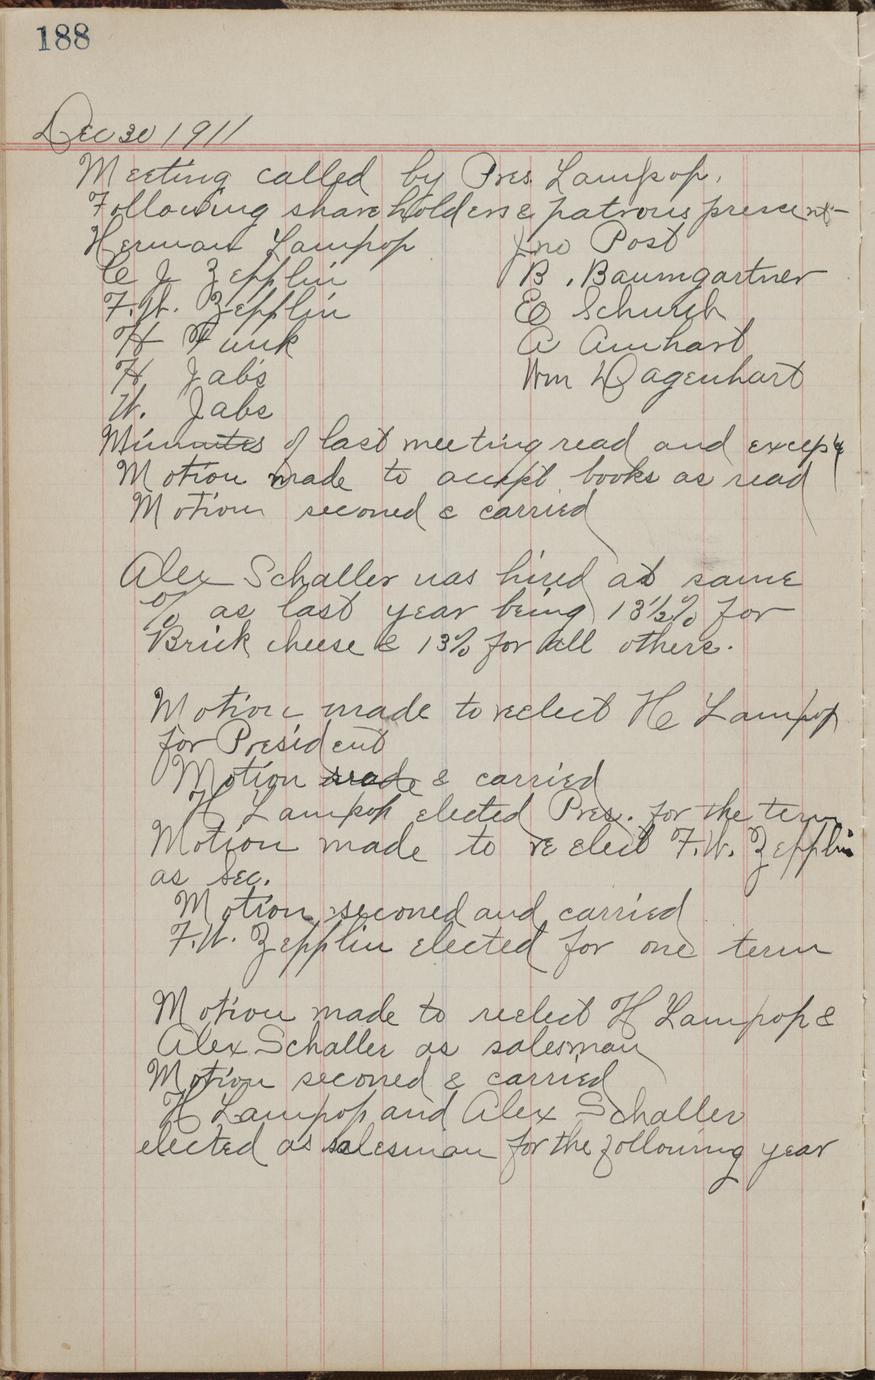 188
Dec 30 1911
Meeting called by Pres. Lampop.
Following shareholders & patrons present
Herman Lampop Jno Post
C J Zepplin B. Baumgartner
F.W. Zepplin Ed Schurch
H Funk A Amhart
H Jabs Wm Dagenhart
W. Jabs
Minutes of last meeting read and
Motion made to accept books as read
Motion seconed & carried
Alex Schaller was hired at same
% as last year being 13½% for
Brick cheese & 13% for all others.
Motion made to reelect H Lampop
for President
Motion made & carried
H Lampop elected Pres. for the term
Motion made to re elect F.W. Zepplin
as Sec.
Motion seconed and carried
F.W. Zepplin elected for one term
Motion made to reelect H Lampop &
Alex Schaller as salesman
Motion seconed & carried
H Lampop and Alex Schaller
elected as salesman for the following year